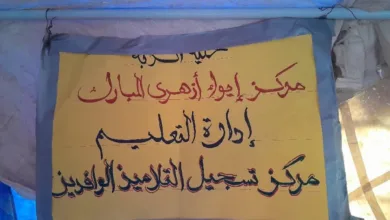 مركز إيواء أزهرى المبارك
إدارة التعليم
مركز تسجيل التلاميذ الوافدين